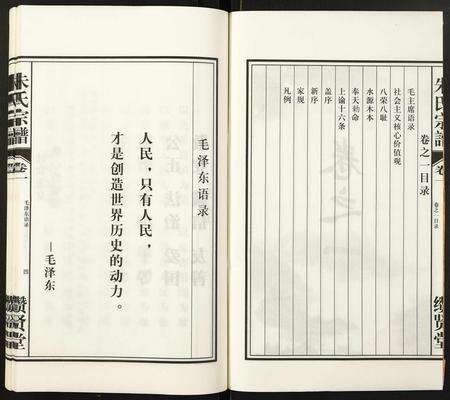 朱氏宗譜
卷一
卷之一目录
缵贤堂
卷之一目录
毛主席语录
社会主义核心价值观
八荣八耻
水源木本
奉天勅命
上谕十六条
盖序
新序
家规
凡例
毛泽东语录
人民，只有人民，
才是创造世界历史的动力。
—毛泽东
朱氏宗譜
卷一
毛泽东语录
四
缵贤堂